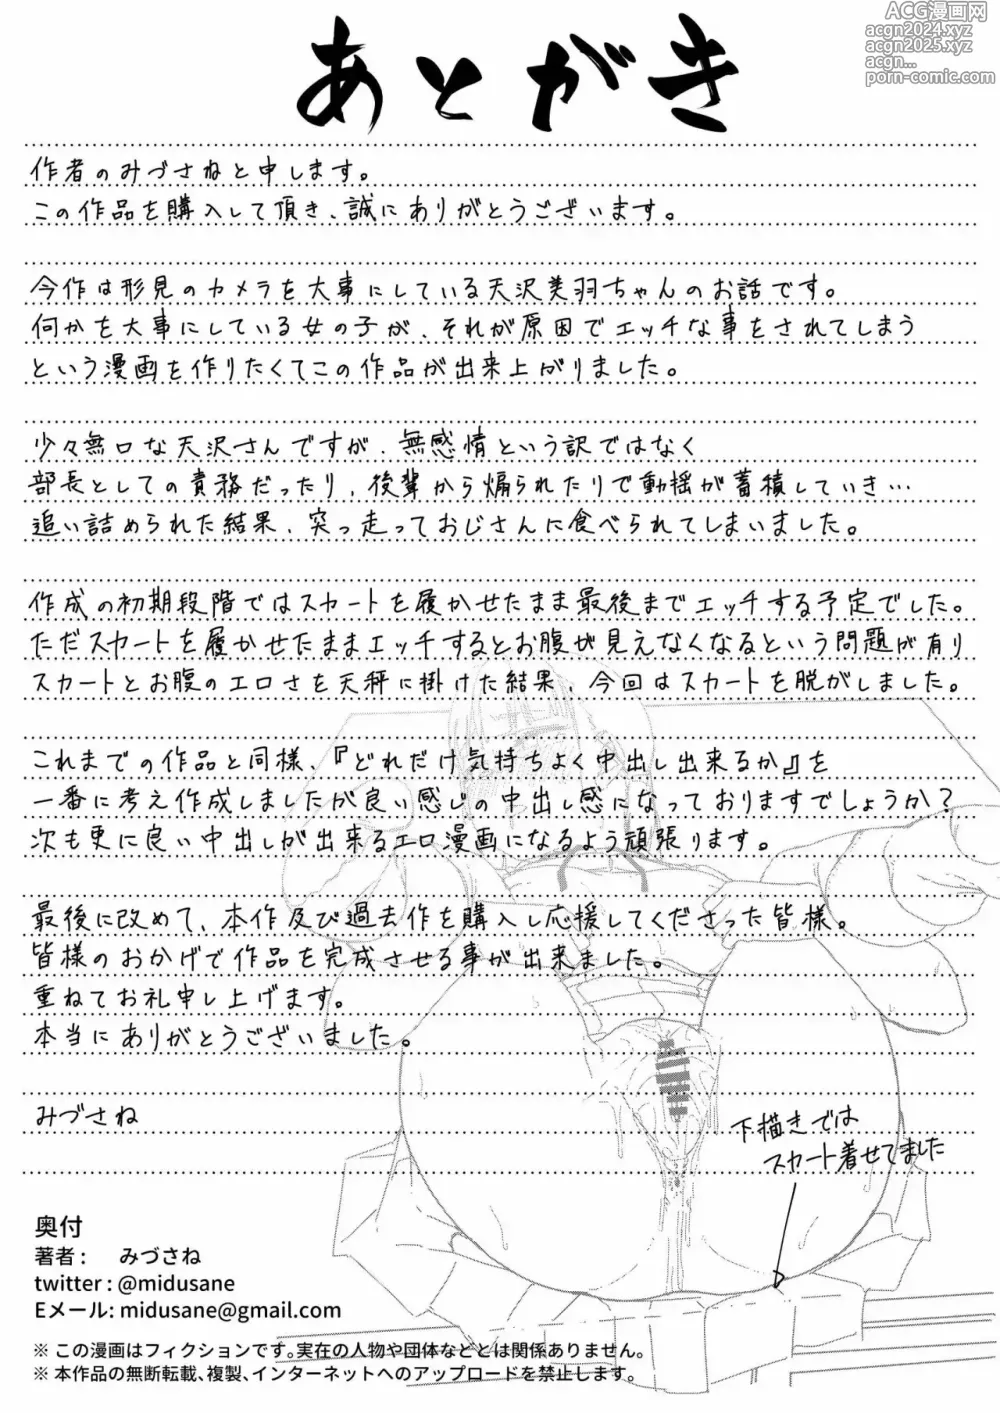 ACG漫画网
acgn2024.xyz
acgn2025.xyz
acgn...
porn-comic.com
あとがき
作者のみづさねと申します。
この作品を購入して頂き、誠にありがとうございます。
今作は形見のカメラを大事にしている天沢美羽ちゃんのお話です。
何かを大事にしている女の子が、それが原因でエッチな事をされてしまう
という漫画を作りたくてこの作品が出来上がりました。
少々無口な天沢さんですが、無感情という訳ではなく
部長としての責務だったり、後輩から煽られたりで動揺が蓄積していき…
追い詰められた結果、突っ走っておじさんに食べられてしまいました。
作成の初期段階ではスカートを履かせたまま最後までエッチする予定でした。
ただスカートを履かせたままエッチするとお腹が見えなくなるという問題が有り
スカートとお腹のエロさを天秤に掛けた結果、今回はスカートを脱がしました。
これまでの作品と同様、『どれだけ気持ちよく中出し出来るか』を
一番に考え作成しましたが良い感じの中出し感になっておりますでしょうか?
次も更に良い中出しが出来るエロ漫画になるよう頑張ります。
最後に改めて、本作及び過去作を購入し応援してくださった皆様。
皆様のおかげで作品を完成させる事が出来ました。
重ねてお礼申し上げます。
本当にありがとうございました。
みづさね
下描きでは
スカート着せてました
奥付
著者： みづさね
twitter : @midusane
Eメール: midusane@gmail.com
※ この漫画はフィクションです。実在の人物や団体などとは関係ありません。
※ 本作品の無断転載、複製、インターネットへのアップロードを禁止します。